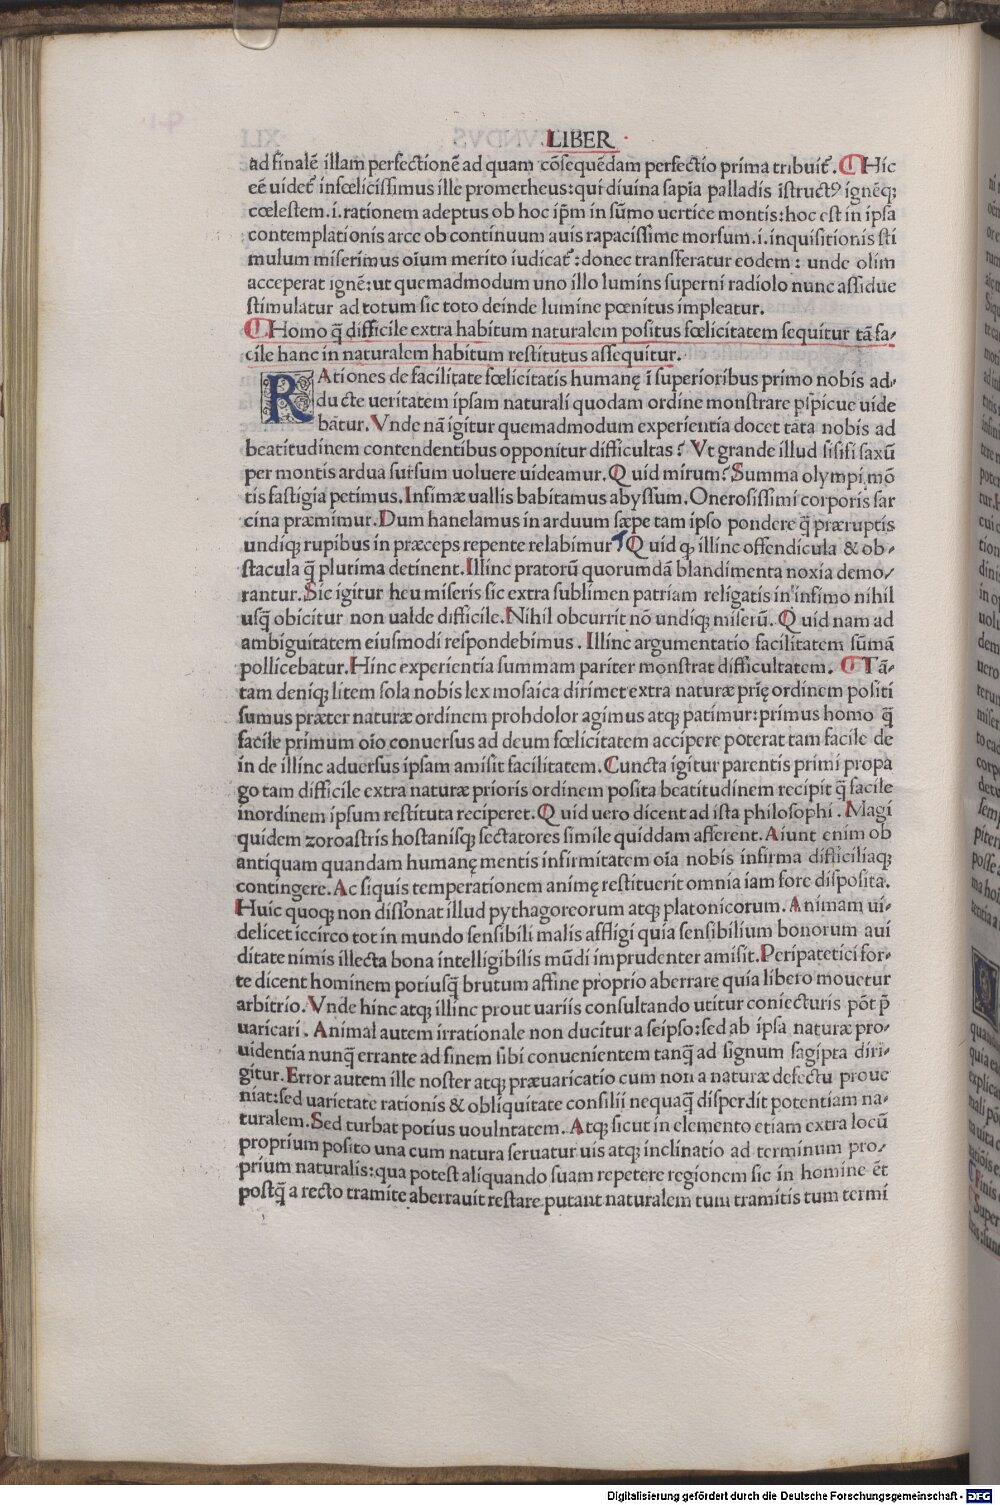 LIBER
ad finalē illam perfectionē ad quam cōsequēdam perfectio prima tribuit̄. Hic
eē uidet̄ infœlicissimus ille prometheus:qui diuina sapīa palladis īstructꝰ ignēq;
cœlestem.i.rationem adeptus ob hoc ip̄m in sūmo uertice montis:hoc est in ipsa
contemplationis arce ob continuum auis rapacissime morsum.i.inquisitionis sti
mulum miserimus oīum merito iudicat̄:donec transferatur eodem: unde olim
acceperat ignē:ut quemadmodum uno illo lumins superni radiolo nunc assidue
stimulatur ad totum sic toto deinde lumine pœnitus impleatur.
Homo q̄ difficile extra habitum naturalem positus fœlicitatem sequitur tā fa-
cile hanc in naturalem habitum restitutus assequitur.
RAtiones de facilitate fœlicitatis humanę ī superioribus primo nobis ad-
du cte ueritatem ipsam naturali quodam ordine monstrare p̲spicue uide
bātur. Vnde nā igitur quemadmodum experientia docet tāta nobis ad
beatitudinem contendentibus opponitur difficultas? Vt grande illud sisifi saxū
per montis ardua sursum uoluere uideamur. Quid mirum? Summa olympi mō
tis fastigia petimus. Infimæ uallis babitamus abyssum. Onerosissimi corporis sar
cina præmimur. Dum hanelamus in arduum sæpe tam ipso pondere q̄ præruptis
undiq; rupibus in præceps repente relabimur Quid ꝙ illinc offendicula & ob-
stacula q̄ plurima detinent. Illinc pratorū quorumdā blandimenta noxia demo-
rantur. Sic igitur heu miseris sic extra sublimen patriam religatis in infimo nihil
usq̄ obicitur non ualde difficile. Nihil obcurrit nō undiq; miserū. Quid nam ad
ambiguitatem eiusmodi respondebimus. Illinc argumentatio facilitatem sūmā
pollicebatur. Hinc experientia summam pariter monstrat difficultatem. Tā-
tam deniq; litem sola nobis lex mosaica dirimet extra naturæ prię ordinem positi
sumus præter naturæ ordinem prohdolor agimus atq; patimur:primus homo q̄
facile primum oīo conuersus ad deum fœlicitatem accipere poterat tam facile de
in de illinc aduersus ipsam amisit facilitatem. Cuncta igitur parentis primi propa
go tam difficile extra naturæ prioris ordinem posita beatitudinem recipit q̄ facile
inordinem ipsum restituta reciperet. Quid uero dicent ad ista philosophi. Magi
quidem zoroastris hostanisq; sectatores simile quiddam afferent. Aiunt enim ob
antiquam quandam humanę mentis infirmitatem oīa nobis infirma difficiliaq;
contingere. Ac siquis temperationem animę restituerit omnia iam fore disposita.
Huic quoq; non dissonat illud pythagoreorum atq; platonicorum. Animam ui-
delicet iccirco tot in mundo sensibili malis affligi quia sensibilium bonorum aui
ditate nimis illecta bona intelligibilis mūdi imprudenter amisit. Peripatetici for-
te dicent hominem potiusq̄ brutum affine proprio aberrare quia libero mouetur
arbitrio. Vnde hinc atq; illinc prout uariis consultando utitur coniecturis pōt p̄
uaricari. Animal autem irrationale non ducitur a seipso:sed ab ipsa naturæ pro-
uidentia nunq̄ errante ad finem sibi conuenientem tanq̄ ad signum sagipta diri-
gitur. Error autem ille noster atq; præuaricatio cum non a naturæ defectu proue
niat:sed uarietate rationis & obliquitate consilii nequaq̄ disperdit potentiam na-
turalem. Sed turbat potius uoulntatem. Atq; sicut in elemento etiam extra locū
proprium posito una cum natura seruatur uis atq; inclinatio ad terminum pro-
prium naturalis:qua potest aliquando suam repetere regionem sic in homine ēt
postq̄ a recto tramite aberrauit restare putant naturalem tum tramitis tum termi
Digitalisierung gefördert durch die Deutsche Forschungsgemeinschaft - DFG